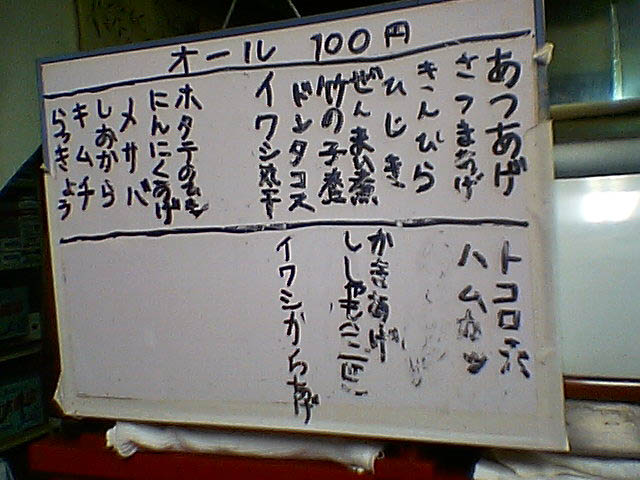 オール 100円
あつあげ
さつまあげ
きんぴら
ひじき
ぜんまい煮
竹の子煮
ドンタコス
イワシ丸干
ホタテのひも
にんにくあげ
メサバ
しおから
キムチ
らっきょう
トコロ天
ハムカツ
かきあげ
ししゃも(二匹)
イワシからあげ